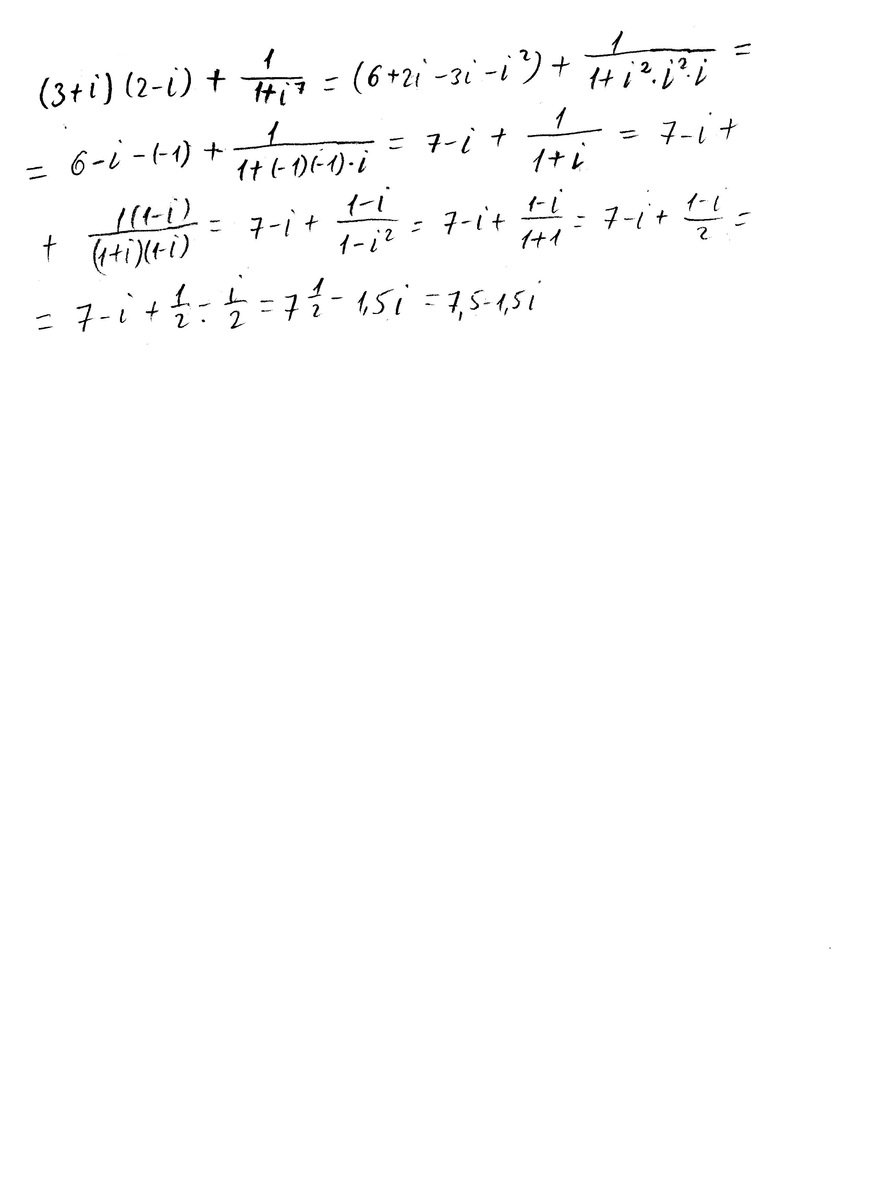 (3+i)(2-i) + 1/(1+i⁷) = (6+2i-3i-i²) + 1/(1+i²·i²·i) =
= 6-i-(-1) + 1/(1+(-1)(-1)·i) = 7-i + 1/(1+i) = 7-i +
+ 1(1-i)/((1+i)(1-i)) = 7-i + (1-i)/(1-i²) = 7-i + (1-i)/(1+1) = 7-i + (1-i)/2 =
= 7-i + 1/2 - i/2 = 7 1/2 - 1,5i = 7,5-1,5i